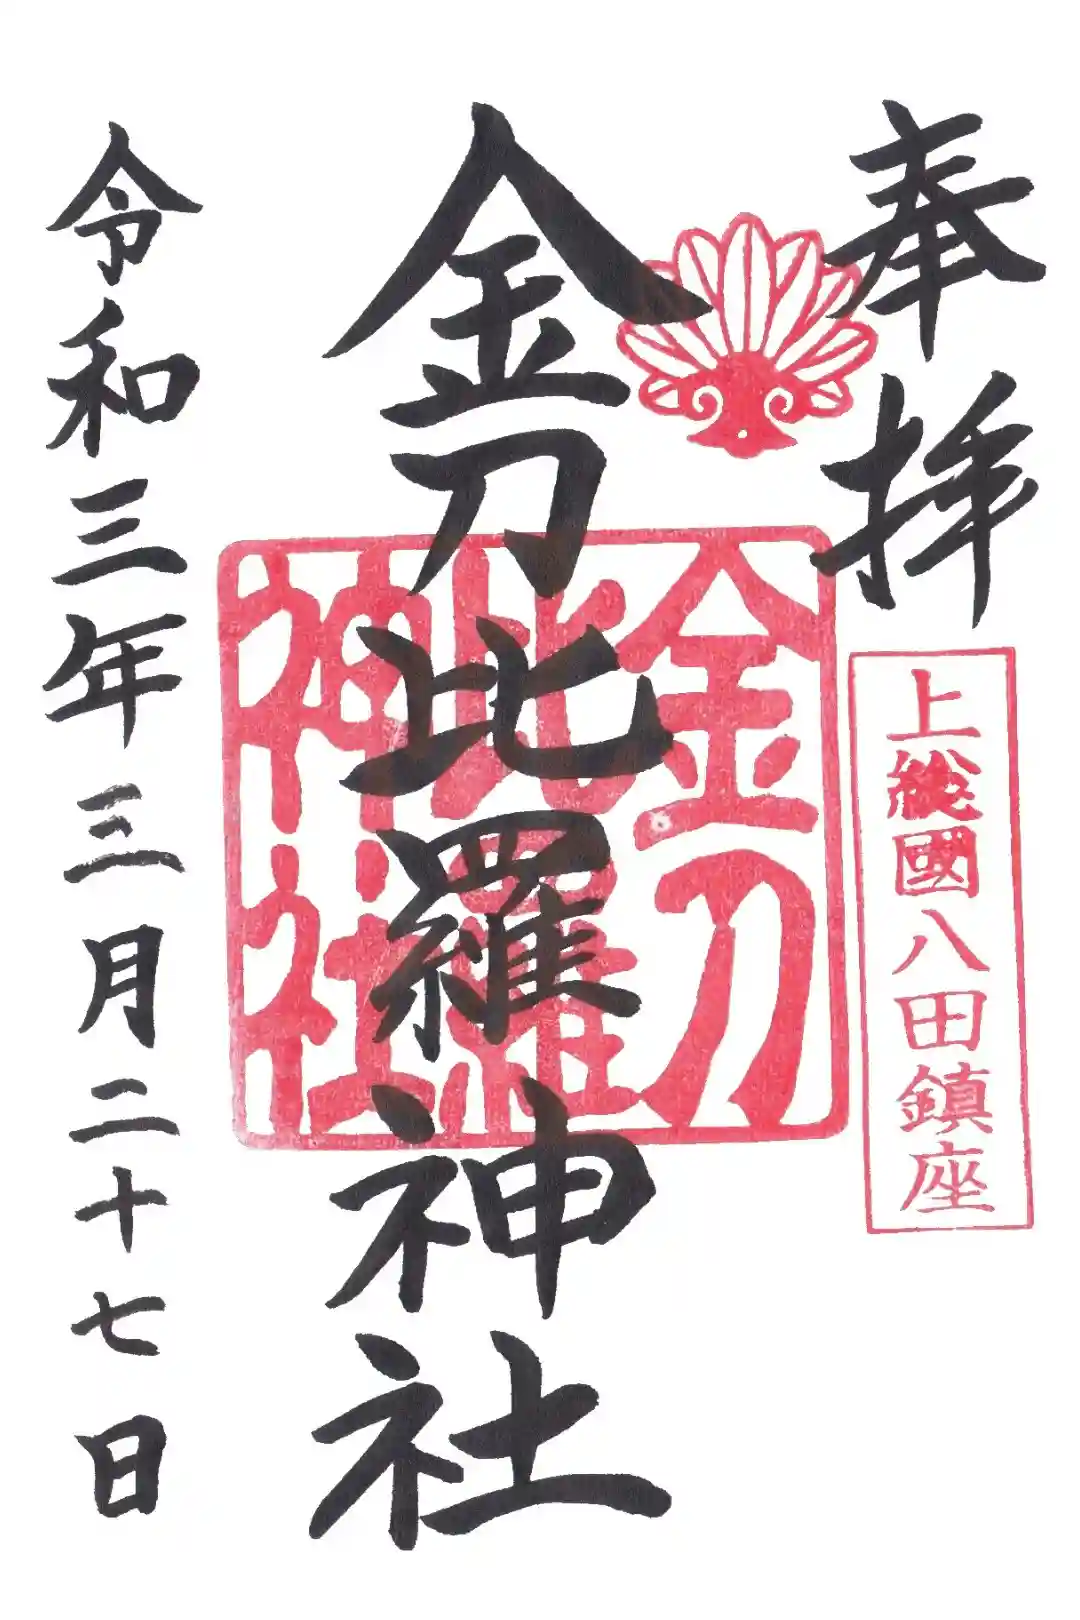 奉拝
上総國八田鎮座
金刀比羅神社
金刀
比羅
神社
令和三年三月二十七日